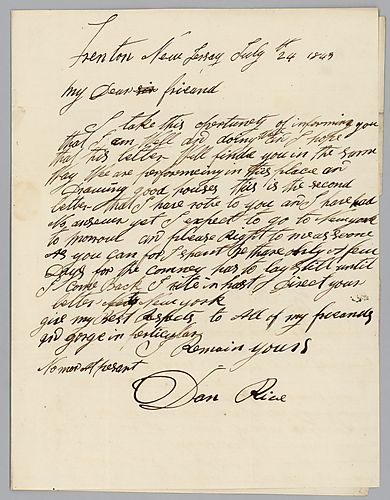 Trenton New Jersey July 24th 1843
My Dear sir frieand
I take this opertunety of informing you
that I am well and doing well an I hope
that this letter will finde you in the same
way We are performeing in this place an
Drawing good houses this is the second
letter that I have rote to you and I have had
no answer yet I expect to go to new york
to morrow and please Right to me as soone
as you can for I shant be there only a few
Days for the comney has to lay still until
I Come Back I rite in hast Direct your
letter new york
give my best respects to All of my frieands
and gorge in perticular
Remain yours
No more At presant
Dan Rice